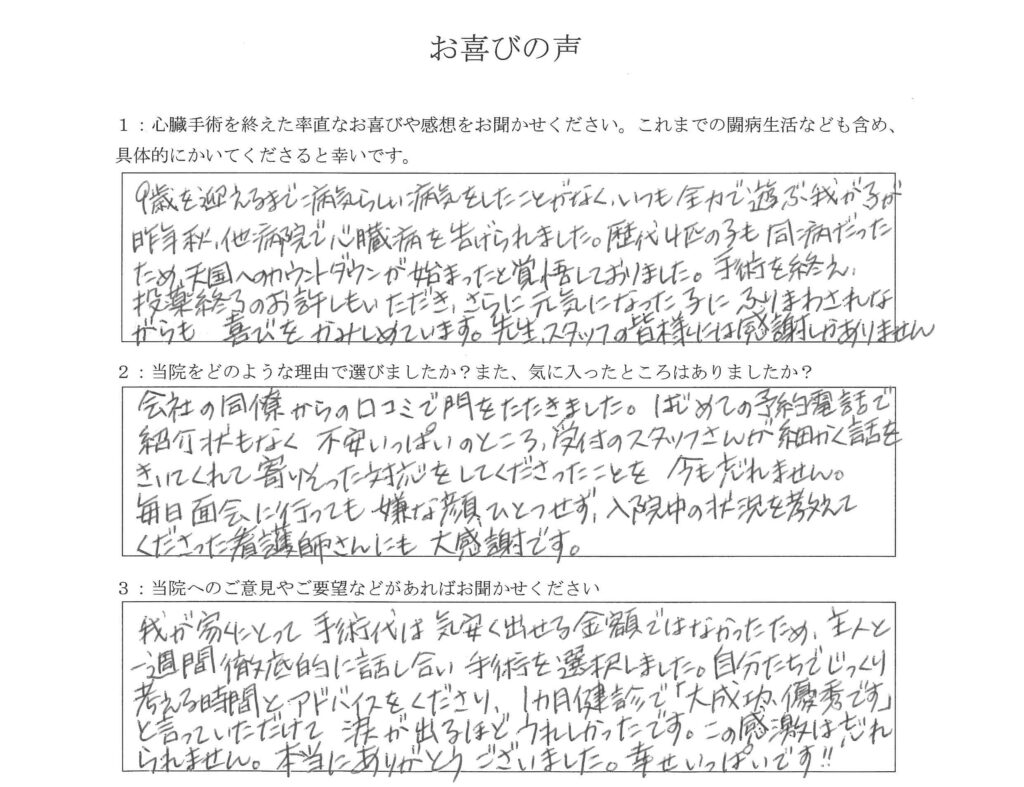 お喜びの声
1：心臓手術を終えた率直なお喜びや感想をお聞かせください。これまでの闘病生活なども含め、
具体的にかいてくださると幸いです。
9歳を迎えるまで病気らしい病気をしたことがなく、いつも全力で遊ぶ我が子が
昨年秋、他病院で心臓病を告げられました。歴代4匹の子も同病だった
ため、天国へのカウントダウンが始まったと覚悟しておりました。手術を終え、
投薬終了のお許しもいただき、さらに元気になった子にふりまわされな
がらも 喜びをかみしめています。先生、スタッフの皆様には感謝しかありません
2：当院をどのような理由で選びましたか？また、気に入ったところはありましたか？
会社の同僚からの口コミで門をたたきました。はじめての予約電話で
紹介状もなく 不安いっぱいのところ、受付のスタッフさんが細かく話を
きいてくれて寄りそった対応をしてくださったことを 今も忘れません。
毎日面会に行っても嫌な顔ひとつせず、入院中の状況を教えて
くださった看護師さんにも 大感謝です。
3：当院へのご意見やご要望などがあればお聞かせください
我が家にとって 手術代は気安く出せる金額ではなかったため、主人と
一週間徹底的に話し合い 手術を選択しました。自分たちでじっくり
考える時間とアドバイスをくださり、1カ月健診で「大成功、優秀です」
と言っていただけて 涙が出るほどうれしかったです。この感激は忘れ
られません。本当にありがとうございました。幸せいっぱいです!!